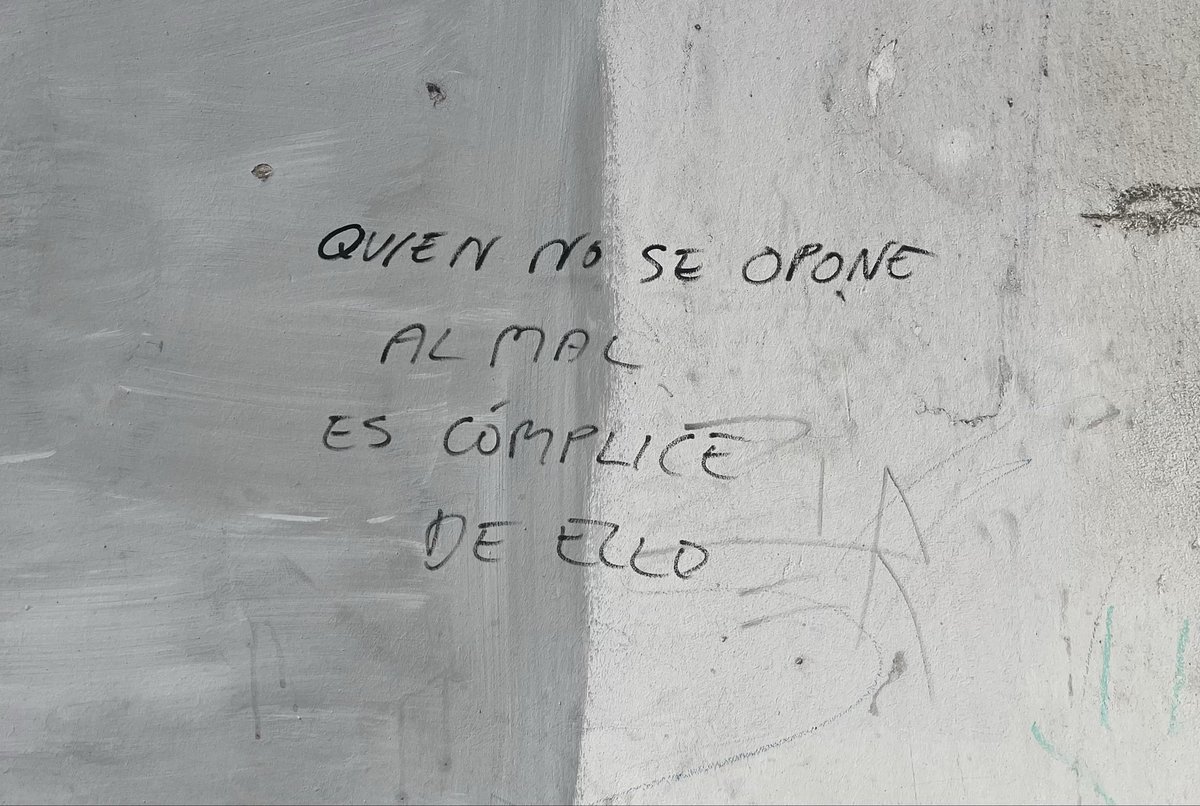 QUIEN NO SE OPONE
AL MAL
ES CÓMPLICE
DE ELLO